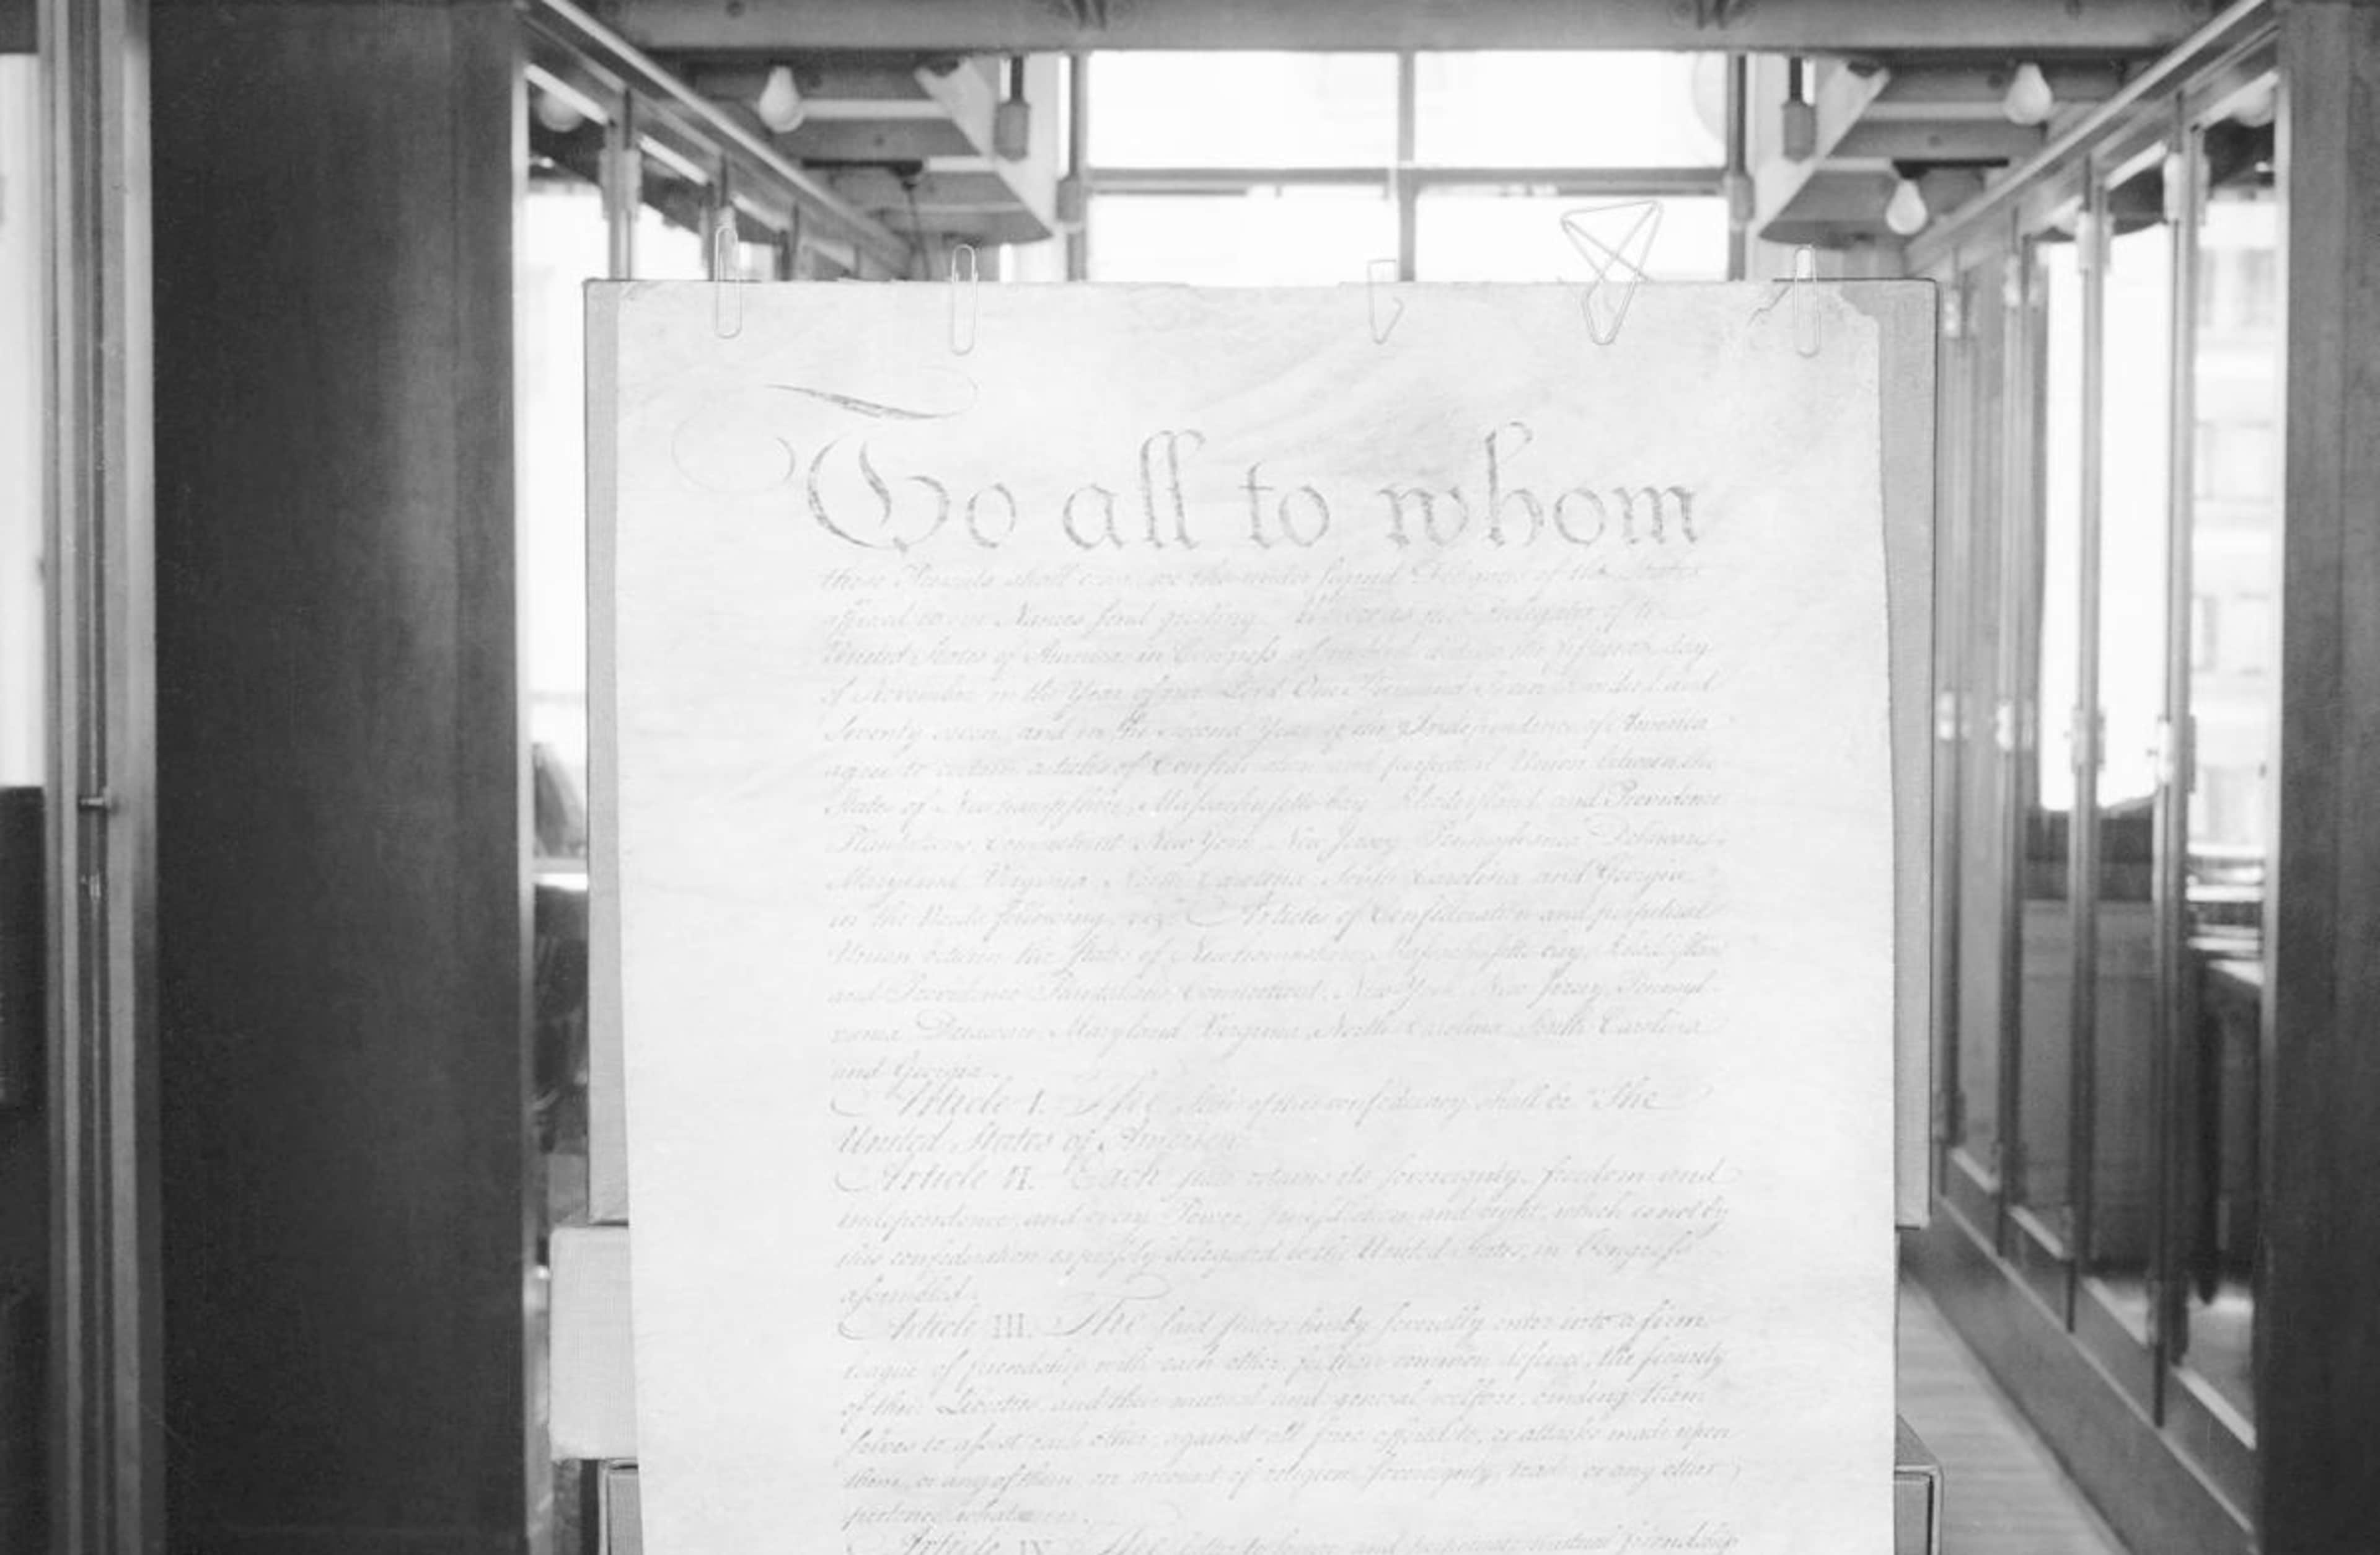 To all to whom
these Presents shall come, we the under signed Delegates of the States
affixed to our Names send greeting. Whereas the Delegates of the
United States of America in Congress assembled did on the fifteenth day
of November in the Year of our Lord One Thousand Seven Hundred and
Seventy seven, and in the Second Year of the Independence of America
agree to certain articles of Confederation and perpetual Union between the
States of Newhampshire, Massachusetts-bay, Rhodeisland and Providence
Plantations, Connecticut, New York, New Jersey, Pennsylvania, Delaware,
Maryland, Virginia, North-Carolina, South-Carolina and Georgia
in the Words following, viz. Articles of Confederation and perpetual
Union between the States of Newhampshire, Massachusetts-bay, Rhodeisland
and Providence Plantations, Connecticut, New York, New Jersey, Pennsyl-
vania, Delaware, Maryland, Virginia, North-Carolina, South-Carolina
and Georgia.
Article I. The Stile of this confederacy shall be "The
United States of America."
Article II. Each state retains its sovereignty, freedom and
independence, and every Power, Jurisdiction and right, which is not by
this confederation expressly delegated to the United States, in Congress
assembled.
Article III. The said states hereby severally enter into a firm
league of friendship with each other, for their common defence, the security
of their Liberties, and their mutual and general welfare, binding them-
selves to assist each other, against all force offered to, or attacks made upon
them, or any of them, on account of religion, sovereignty, trade, or any other
pretence whatever.
Article IV. The better to secure and perpetuate mutual friendship